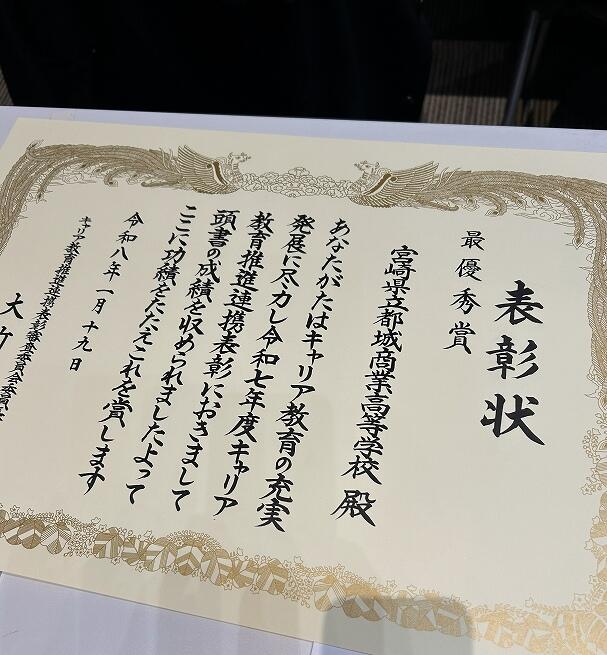 表彰状
最優秀賞
宮崎県立都城商業高等学校 殿
あなたがたはキャリア教育の充実
発展に尽力し令和七年度キャリア
教育推進連携表彰におきまして
頭書の成績を収められましたよって
ここに功績をたたえこれを賞します
令和八年一月十九日
キャリア教育推進連携表彰審査委員会委員長
大竹